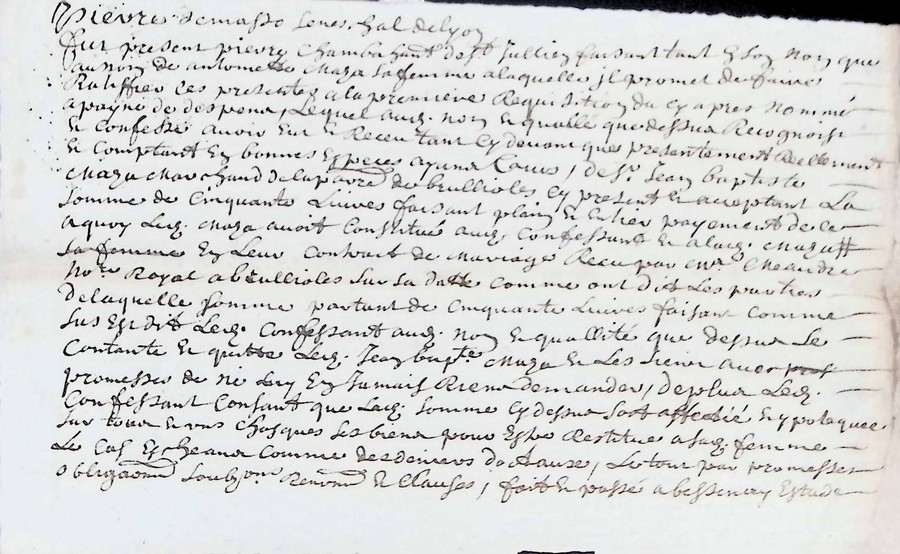 fut present pierre Chamba hant de st Jullien faisant tant en son nom que
au nom de antoinette Maza sa femme a laquelle il promet de faire
Ratiffier ces presentes a la premiere Requisition du cy apres nommé
a payne de despens, Lequel audz. nom en qualité que dessus Recognoist
et Confesse avoir eut et Receu tant cy devant que presentement Reellement
et Comptant en bonnes especes ayans Cours, de sr. Jean baptiste
Maza Marchand de la parre de brullioles cy present et acceptant La
somme de Cinquante Livres faisant plain et entier payement de ce
a quoy Ledz. Maza avoit Constitué audz. Confessant et a ladz. Maza
sa femme en Leur Contract de Mariage Receu par Me.
No.re Royal a brullioles sur sa datte comme ont dit Les parties
de laquelle somme partant de Cinquante Livres faisant comme
sus est dit Ledz. Confessant audz. nom en quallité que dessus se
Contante et quitte Ledz. Jean bapte. Maza et Les siens avec
promesses de ne luy en Jamais Riens demander, de plus Ledz.
Confessant Consant que Ladz. somme cy dessus soit affectté et ypotequee
sur tous et uns Chasques ses biens pour estre Restitue a sadz. femme
Le Cas escheans comme des deniers dotaux, Le tout par promesses
obligaons soubzon Renons et Clauses, fait et passé a bessenay estude